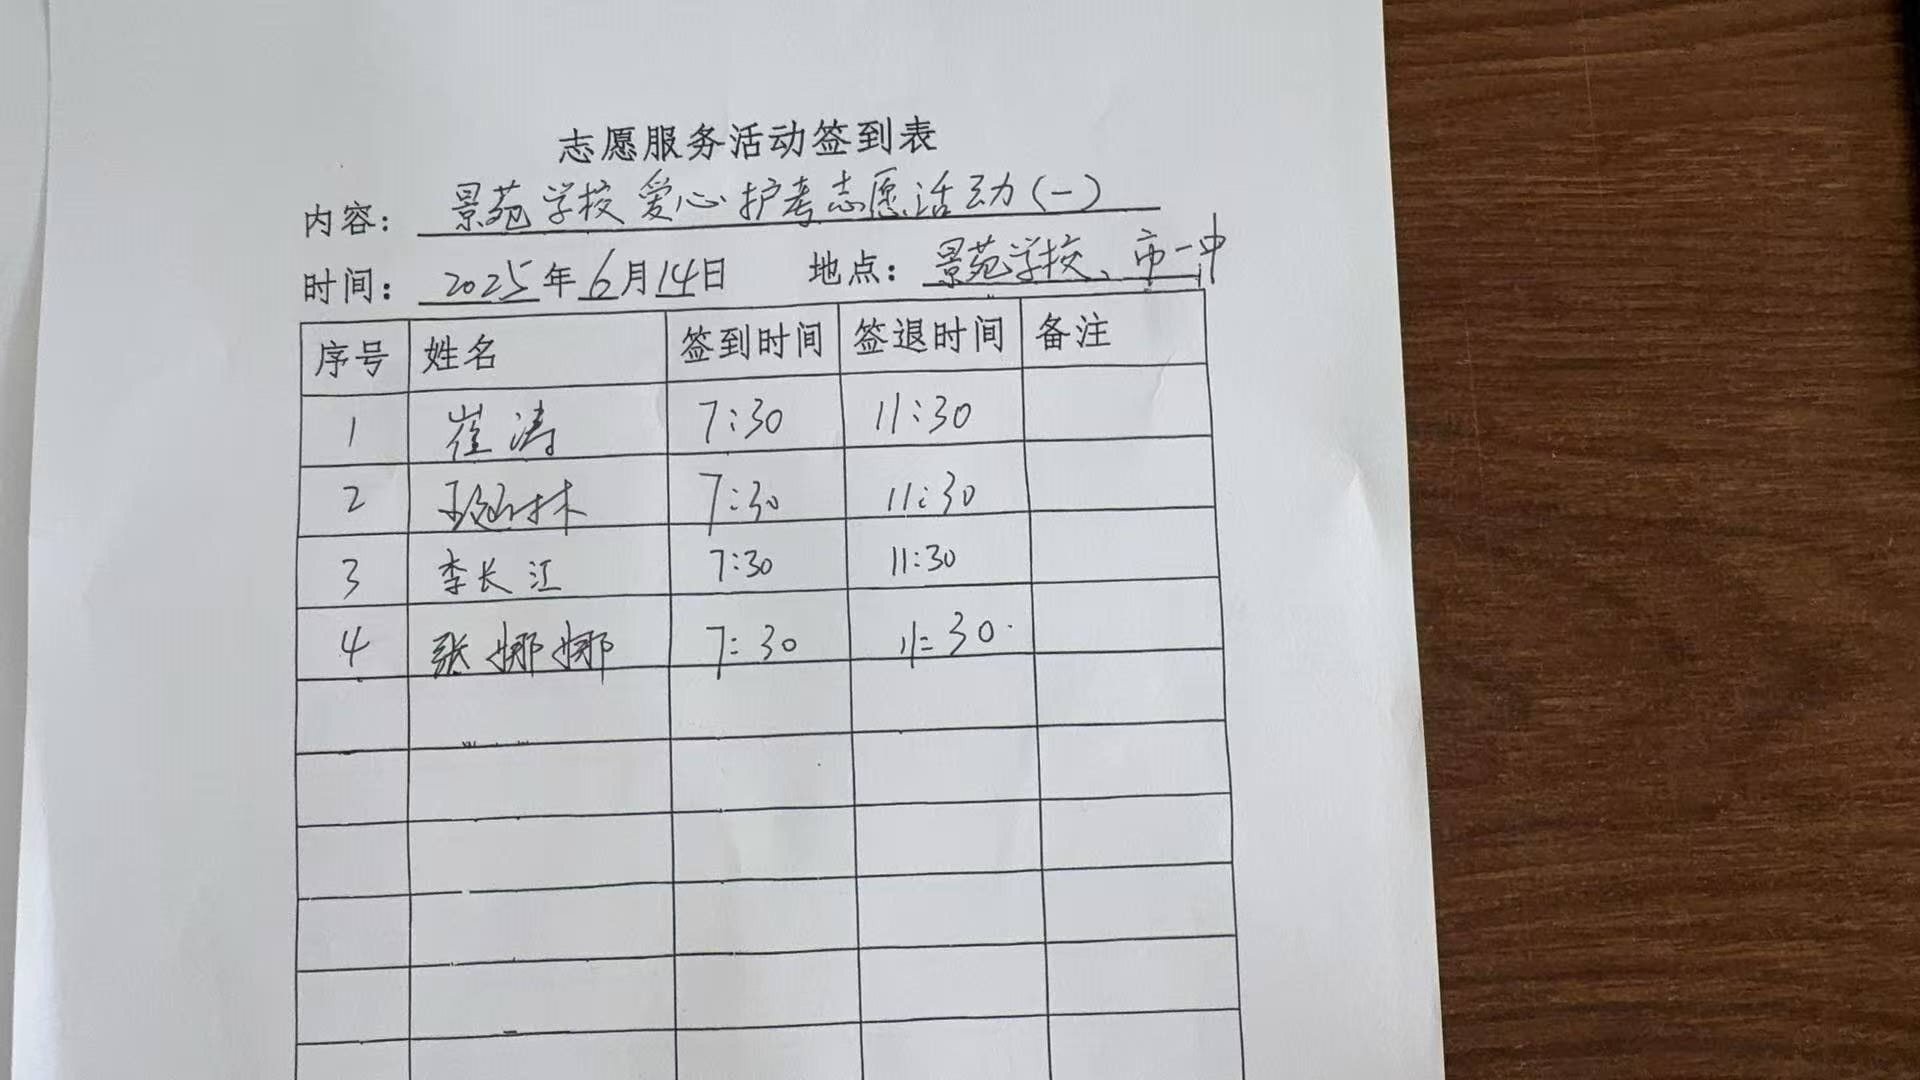 志愿服务活动签到表
内容: 景苑学校爱心护考志愿活动(一)
时间: 2025年6月14日 地点: 景苑学校、市一中
序号 姓名 签到时间 签退时间 备注
1 崔涛 7:30 11:30
2 7:30 11:30
3 李长江 7:30 11:30
4 张娜娜 7:30 11:30